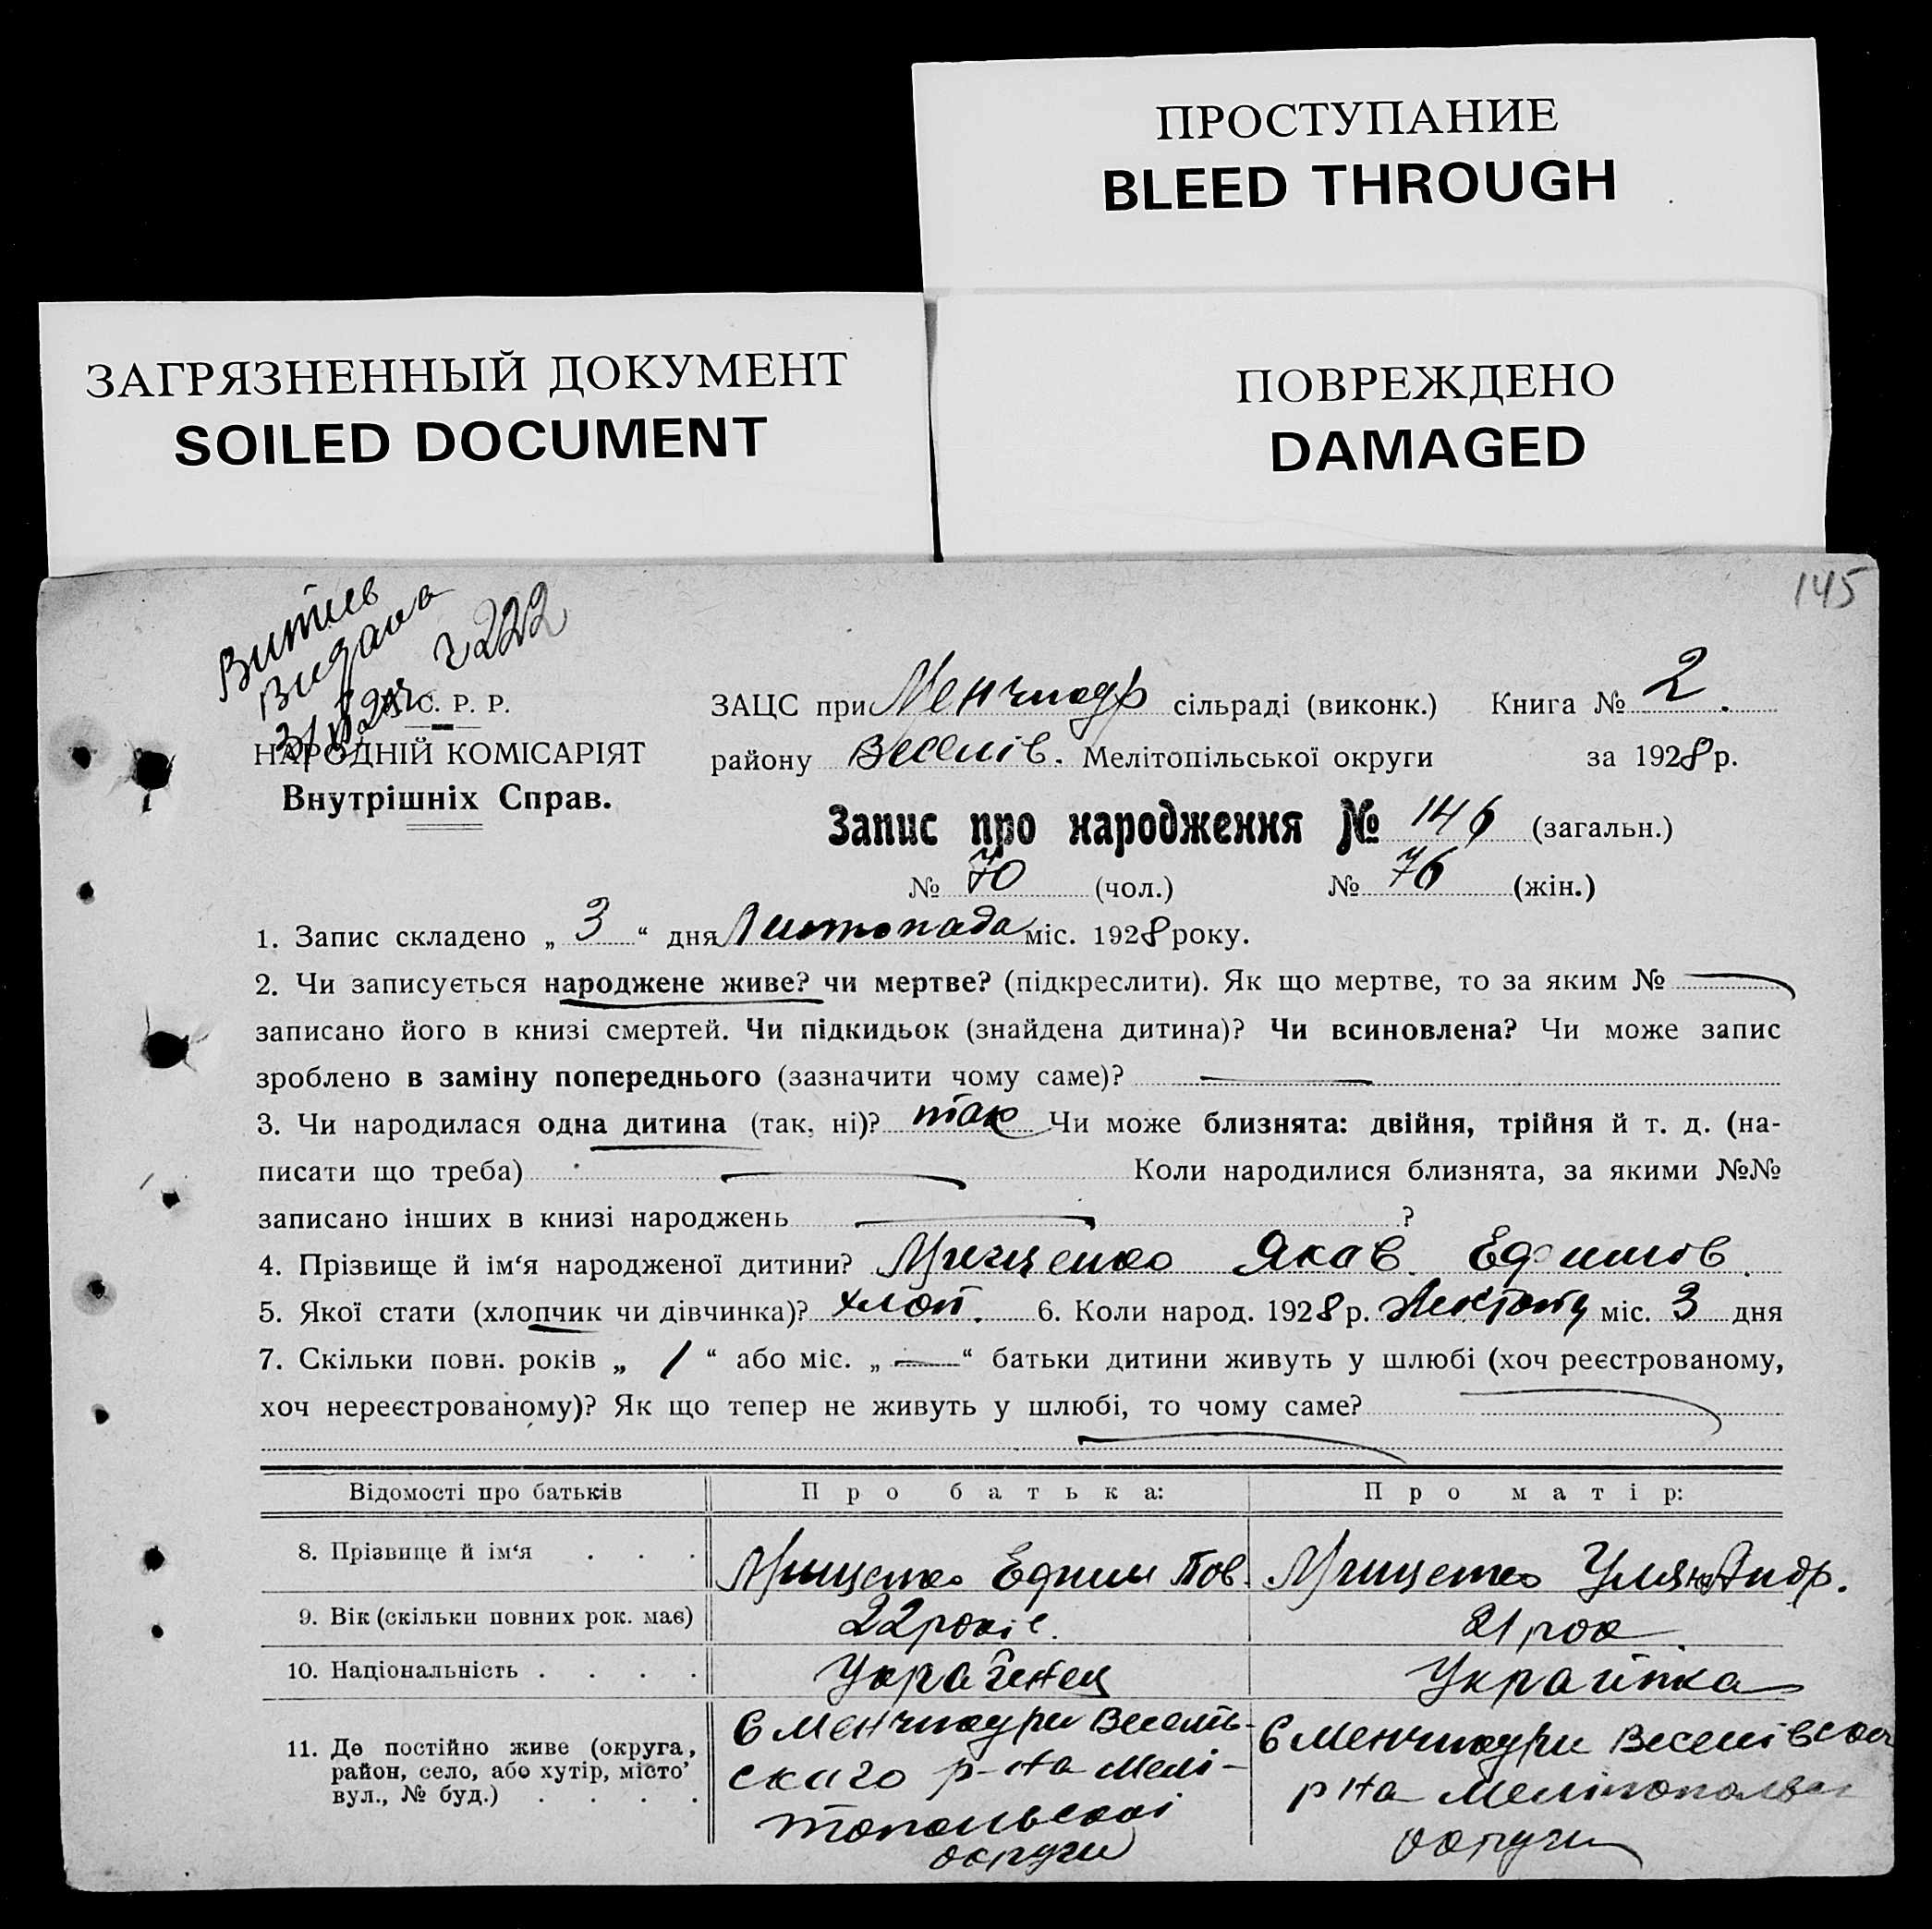 ПРОСТУПАНИЕ
BLEED THROUGH
ЗАГРЯЗНЕННЫЙ ДОКУМЕНТ
SOILED DOCUMENT
ПОВРЕЖДЕНО
DAMAGED
145
Витяг
Видано
222
С. Р. Р.
НАРОДНІЙ КОМІСАРІЯТ
Внутрішніх Справ.
ЗАЦС при Менчикур сільраді (виконк.) Книга № 2.
району Веселів. Мелітопільської округи за 1928 р.
Запис про народження № 146 (загальн.)
№ 70 (чол.) № 76 (жін.)
1. Запис складено „ 3 “ дня Листопада міс. 1928 року.
2. Чи записується народжене живе? чи мертве? (підкреслити). Як що мертве, то за яким №
записано його в книзі смертей. Чи підкидьок (знайдена дитина)? Чи всиновлена? Чи може запис
зроблено в заміну попереднього (зазначити чому саме)?
3. Чи народилася одна дитина (так, ні)? так Чи може близнята: двійня, трійня й т. д. (на-
писати що треба) Коли народилися близнята, за якими №№
записано інших в книзі народжень ?
4. Прізвище й ім‘я народженої дитини? Грищенко Яков Ефимов.
5. Якої стати (хлопчик чи дівчинка)? хлоп. 6. Коли народ. 1928 р. міс. 3 дня
7. Скільки повн. років „ 1 “ або міс. „ — “ батьки дитини живуть у шлюбі (хоч реєстрованому,
хоч нереєстрованому)? Як що тепер не живуть у шлюбі, то чому саме?
Відомості про батьків Про батька: Про матір:
8. Прізвище й ім‘я . . . Грищенко Ефим Пов. Грищенко Уляна Андр.
9. Вік (скільки повних рок. має) 22 років. 21 рок.
10. Національність . . . . Українец Украінка
11. Де постійно живе (округа, район, село, або хутір, місто’ вул., № буд.) . . . .
с Менчикури Веселів-
ского р-на Мелі-
топольскоі
округи
с Менчикури Веселівскои
р на
округи